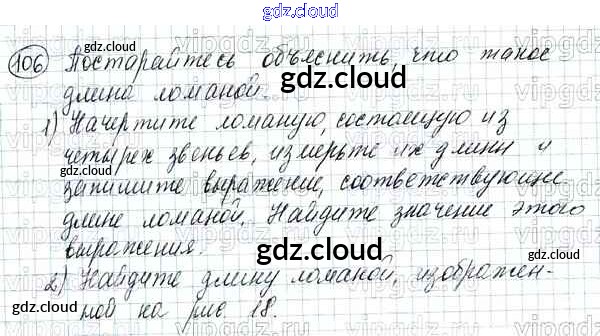 gdz.cloud
106 Постарайтесь объяснить, что такое
длина ломаной.
1) Начертите ломаную, состоящую из
четырех звеньев, измерьте их длины и
запишите выражение, соответствующее
длине ломаной. Найдите значение этого
выражения.
2) Найдите длину ломаной, изображен-
ной на рис. 18.